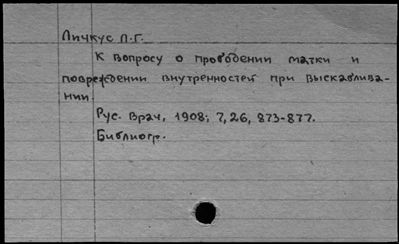 Личкус Л.Г.
К вопросу о прободении матки и
повреждении внутренностей при выскаблива-
нии.
Рус. Врач, 1908; 7, 26, 873-877.
Библиогр.